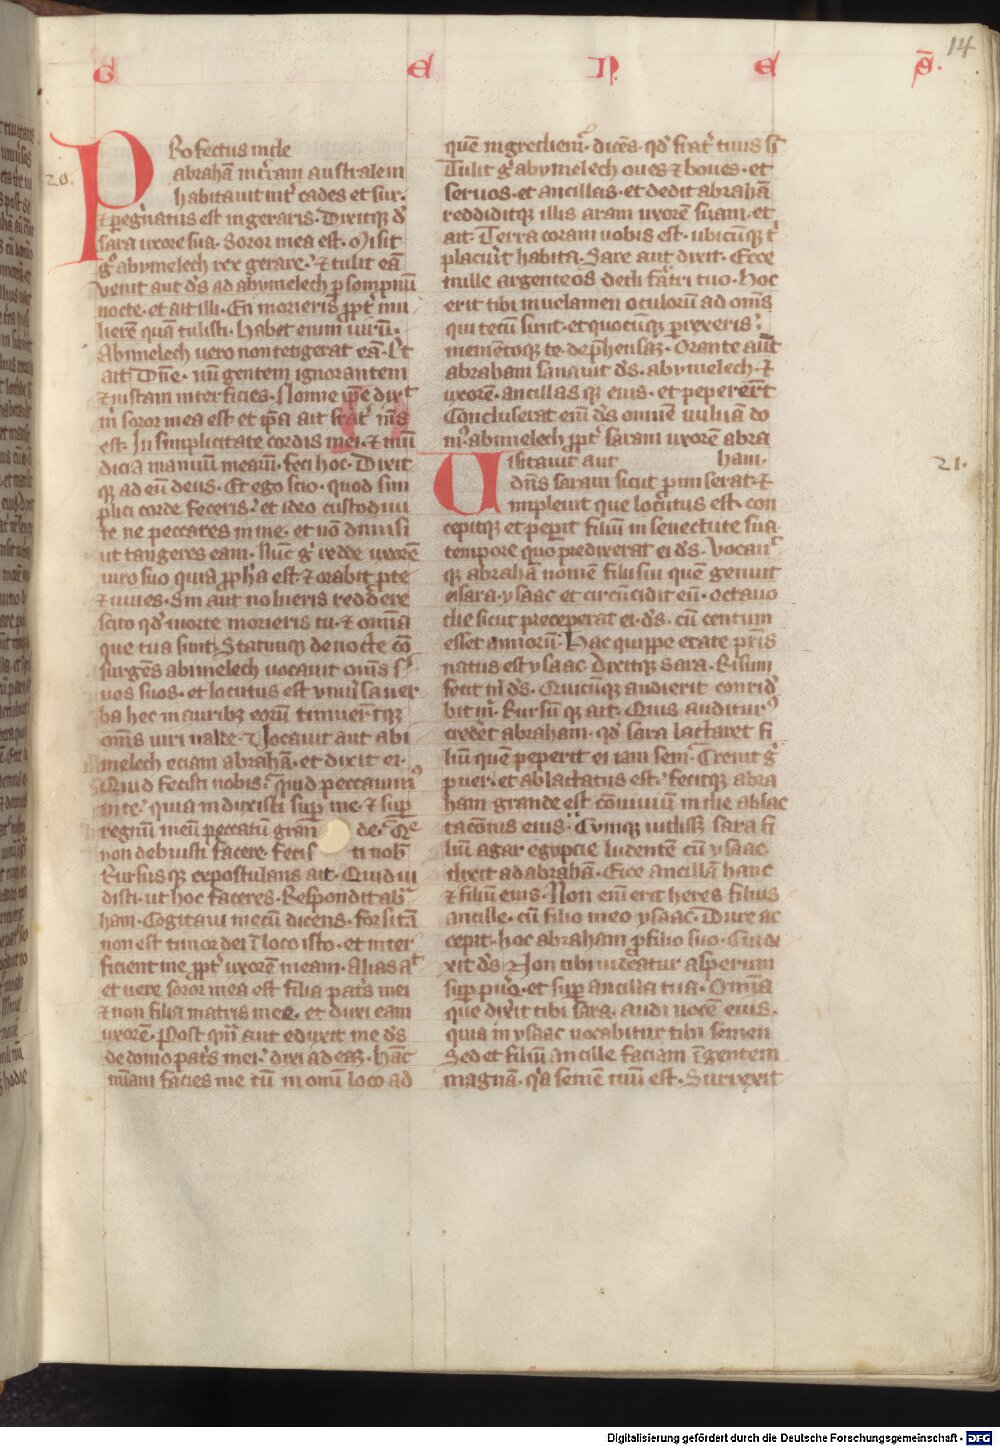 G E N E S̄.
14
20.
PRofectus inde
abrahā in t̓ram australem
habitauit int̓ cades et sur.
⁊ p̱eg̓natus est in geraris. Dixitq̄ d̓
sara uxore sua. Soror mea est. Misit
g̊ abymelech rex gerare. ⁊ tulit eā
Venit aut d̄s ad abymelech ꝑ sompnū
nocte. et ait illi. En morieris ꝓpt̓ mu
lierē quā tulisti. Habet enim uirū.
Abimelech uero non tetigerat eā. Et
ait. Dn̄e. nū gentem ignorantem
⁊ iustam interficies. Nonne ip̄e dixit
m̓ soror mea est. et ip̄a ait frat̓ m̄s
est. In simplicitate cordis mei. ⁊ mū
dicia manuū mearū. feci hoc. Dixit
q̄ ad eū deus. Et ego scio. quod sim
plici corde feceris. et ideo custodiui
te ne peccares in me. et nō dimisi
ut tangeres eam. Nūc g̊ redde uxorē
uiro suo quia ꝓph̄a est. ⁊ orabit ꝓ te
⁊ uiues. Sin aut nolueris reddere
scito qd̓ morte morieris tu. ⁊ om̄ia
que tua sunt. Statimq̄ de nocte cō
surgēs abimelech uocauit om̄s s̓
uos suos. et locutus est vniu̓sa uer
ba hec in auribꝫ eorū timuer̄tq̄
om̄s uiri ualde. Vocauit aut abi
melech eciam abrahā. et dixit ei.
Quid fecisti nobis. quid peccauim᷒
in te. quia induxisti sup̱ me. ⁊ sup̱
regnū meū peccatū gran de. Q̄
non debuisti facere. fecis ti nob̄
Rursusq̄ expostulans ait. Quid ui
disti. ut hoc faceres. Respondit ab̓
ham. Cogitaui mecū dicens. forsitā
non est timor dei ī loco isto. et inter
ficient me ꝓpt̓ uxorē meam. alias at
et uere soror mea est filia pat̓s mei
⁊ non filia matris mee. et duxi eam
uxorē. Post qm̄ aut eduxit me d̄s
de domo pat̓s mei. dixi ad eaꝫ. Hāc
mīam facies me tū in omī loco ad
quē ingrediem᷒. dicēs. qd̓ frat̓ tuus sī
Tulit g̊ abymelech oues ⁊ boues. et
seruos. et ancillas. et dedit abrahā
reddiditq̄ illis aram uxorē suam. et
ait. Terra coram uobis est. ubicūq̄ t̓
placu̓it habita. Sare aut dixit. Ecce
mille argenteos dedi fat̓ri tuo. hoc
erit tibi in uelamen oculorū ad om̄s
qui tecū sunt. et quocūq̄ ꝑrexeris.
mementoq̄ te dep̄hensaꝫ. Orante aūt
abraham sanauit d̄s. abymelech. ⁊
uxorē. ancillas q̄ eius. et pepererūt
Concluserat enī d̄s omnē uuluā do
m᷒ abimelech ꝓpt̓ saram uxorē abra
ham.
21.
UIsitauit aut
dn̄s saram sicut ꝓmiserat. ⁊
impleuit que locutus est. con
cepitq̄ et peperit filiū in senectute sua.
tempore quo predixerat ei d̄s. Vocauit
q̄ abrahā nomē filii sui quē genuit
ei sara. ysaac et circūcidit eū. octauo
die sicut preceperat ei. d̄s. cū centum
esset annorū. Hac quippe etate pr̄is
natus est ysaac. Dixitq̄ sara. Risum
fecit m̓ d̄s. Quicūq̄ audierit conrid̓
bit m̓. Rursū q̄ ait. Quis auditur᷒
crederet abraham. qd̓ sara lactaret fi
liū quē peperit ei iam seni. Creuit g̊
puer. et ablactatus est. fecitq̄ abra
ham grande est cōuiuiū in die ablac
tacōnis eius. Cumq̄ uidiss̓ sara fi
liū agar egypcie ludentē cū ysaac
dixit ad abrahā. Eice ancillā hanc
⁊ filiū eius. Non enī erit heres filius
ancille. cū filio meo ysaac. Dure ac
cepit. hoc abraham ꝓ filio suo. Cui di
xit d̄s. Non tibi uideatur asperum
sup̱ puero. et sup̱ ancilla tua. Om̄ia
que dixerit tibi sara. audi uocē eius.
quia in ysaac uocabitur tibi semen
Sed et filiū ancille faciam ī gentem
magnā. q̓a semē tuū est. Surrexit
Digitalisierung gefördert durch die Deutsche Forschungsgemeinschaft - DFG